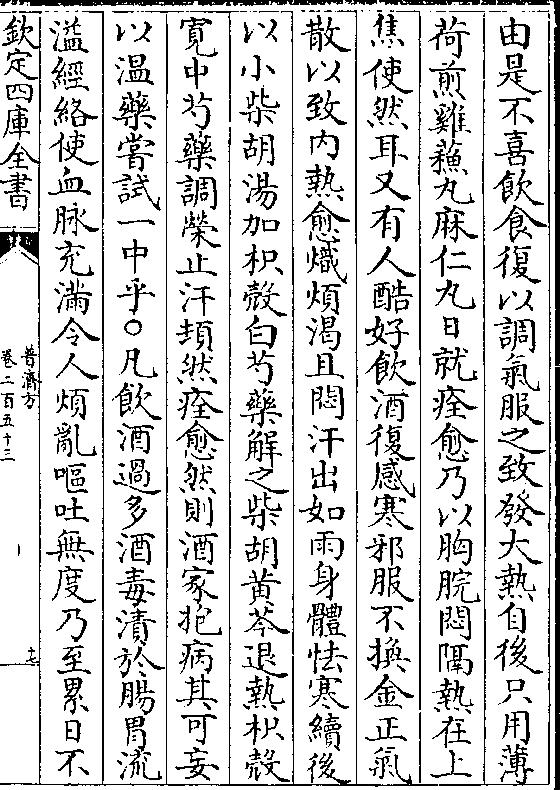 由是不喜飲食復以調氣服之致發大熱自後只用薄
荷煎雞蘓丸麻仁丸日就痊愈乃以胸脘悶隔熱在上
焦使然耳又有人酷好飲酒復感寒邪服不換金正氣
散以致内熱愈熾煩渴且悶汗出如雨身體怯寒續後
以小柴胡湯加枳殼白芍藥解之柴胡黄芩退熱枳殼
寛中芍藥調榮止汗頓然痊愈然則酒家抱病其可妄
以温藥嘗試一中乎○凡飲酒過多酒毒漬於腸胃流
溢經絡使血脉充滿令人煩亂嘔吐無度乃至累日不
欽定四庫全書
普濟方
卷二百五十三
十七